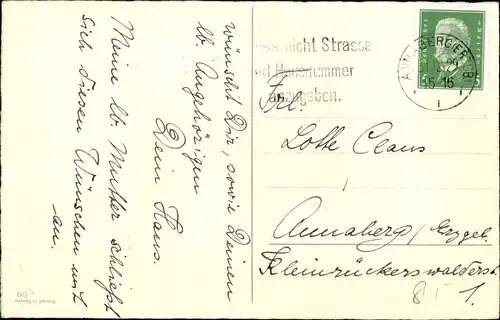 wünscht Dir, sowie Deinen
lb. Angehörigen
Dein Hans.
Meine lb. Mutter schließt
sich diesen Wünschen mit
an.
nicht Strasse
Hausnummer
anzugeben.
ANNABERG (ERZGEB.)
15-16
Frl.
Lotte Claus
Annaberg/Erzgeb.
Kleinrückerswalderstr.
1.